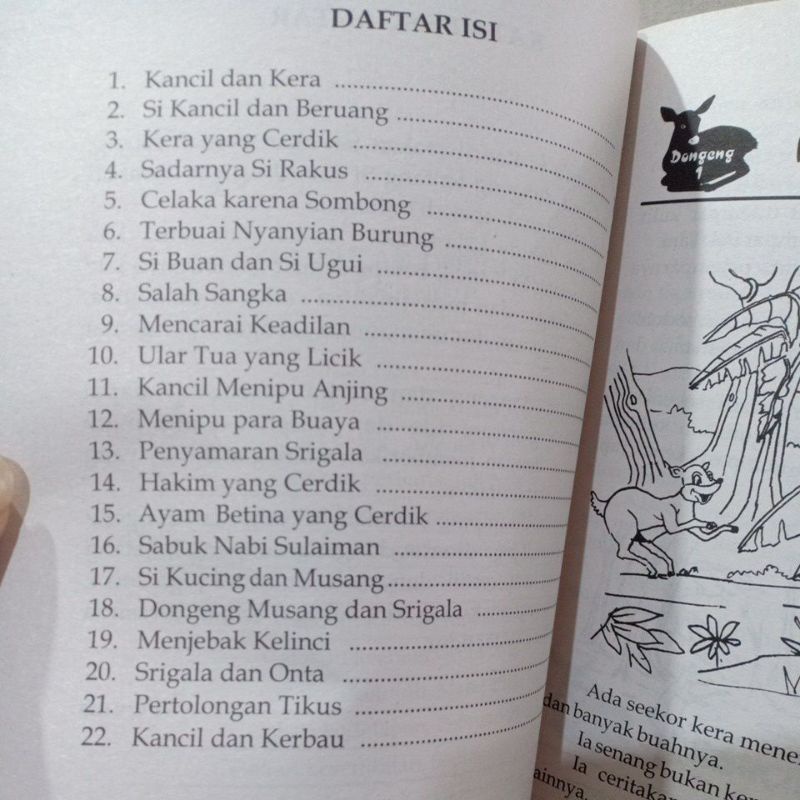 DAFTAR ISI
1. Kancil dan Kera
2. Si Kancil dan Beruang
3. Kera yang Cerdik
4. Sadarnya Si Rakus
5. Celaka karena Sombong
6. Terbuai Nyanyian Burung
7. Si Buan dan Si Ugui
8. Salah Sangka
9. Mencarai Keadilan
10. Ular Tua yang Licik
11. Kancil Menipu Anjing
12. Menipu para Buaya
13. Penyamaran Srigala
14. Hakim yang Cerdik
15. Ayam Betina yang Cerdik
16. Sabuk Nabi Sulaiman
17. Si Kucing dan Musang
18. Dongeng Musang dan Srigala
19. Menjebak Kelinci
20. Srigala dan Onta
21. Pertolongan Tikus
22. Kancil dan Kerbau
Dongeng
1
Ada seekor kera
dan banyak buahnya.
Ia senang bukan
Ia ceritakan